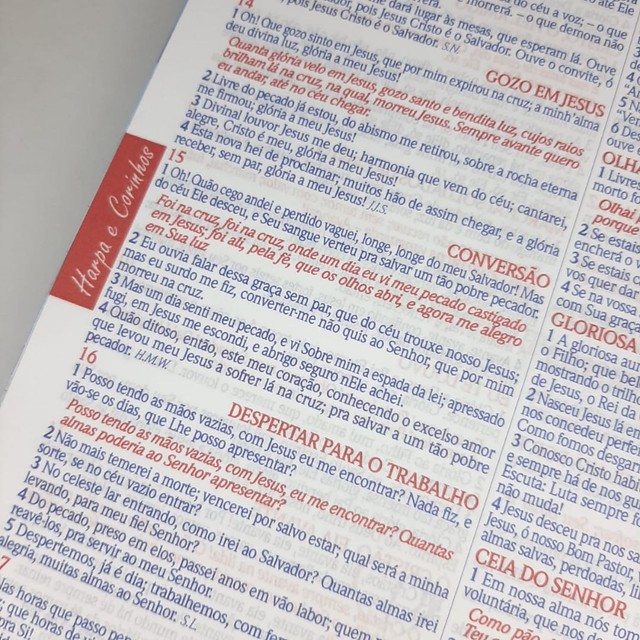 pois Jesus Cristo é o Salvador. S.N.
mador, pois Jesus Cristo é o Salvador. Ouve o convite, ó
me darás lugar às mesas, que esperam lá. Ouve
14
GOZO EM JESUS
1 Oh! Que gozo sinto em Jesus, que por mim expirou na cruz; a minh'alma
deu divina luz, glória a meu Jesus!
Quanta glória velo em Jesus, gozo santo e bendita luz, cujos raios
brilham lá na cruz, na qual, morreu Jesus. Sempre avante quero
eu andar, até no céu chegar.
2 Livre do pecado já estou, do abismo me retirou, sobre a rocha eterna
me firmou; glória a meu Jesus!
3 Divinal louvor Jesus me deu; harmonia que vem do céu; cantarei,
alegre, Cristo é meu, glória a meu Jesus!
4 Esta nova hei de proclamar; muitos hão de assim chegar, e a glória
receber, sem par, glória a meu Jesus! J.I.S.
15
CONVERSÃO
1 Oh! Quão cego andei e perdido vaguei, longe, longe do meu Salvador! Mas
do céu Ele desceu, e Seu sangue verteu pra salvar um tão pobre pecador.
Foi na cruz, foi na cruz, onde um dia eu vi meu pecado castigado
em Jesus; foi ali, pela fé, que os olhos abri, e agora me alegro
em Sua luz
2 Eu ouvia falar dessa graça sem par, que do céu trouxe nosso Jesus;
mas eu surdo me fiz, converter-me não quis ao Senhor, que por mim
morreu na cruz.
3 Mas um dia senti meu pecado, e vi Sobre mim a espada da lei; apressado
fugi, em Jesus me escondi, e abrigo seguro nEle achei.
4 Quão ditoso, então, este meu coração, conhecendo o excelso amor
que levou meu Jesus a sofrer lá na cruz; pra salvar a um tão pobre
pecador. H.M.W.
16
DESPERTAR PARA O TRABALHO
1 Posso tendo às mãos vazias, com Jesus eu me encontrar? Nada fiz, e
vão-se os dias, que Lhe posso apresentar?
Posso tendo às mãos vazias, com Jesus, eu me encontrar? Quantas
almas poderia ao Senhor apresentar?
2 Não mais temerei a morte; vencerei por salvo estar; qual será a minha
sorte, se no céu vazio entrar?
3 No celeste lar entrando, como irei ao Salvador? Quantas almas irei
levando, para meu fiel Senhor?
4 Do pecado, preso em elos, passei anos em vão labor; quem
reavê-los, pra servir ao meu Senhor.
5 Despertemos, já é dia; trabalhemos, com
alegria, muitas almas ao Senhor. S.L.
horas que passo
que horas de
Harpa e Corinhos
do céu a voz; – o que
morrerá. – o que demora não
até Ele
1 Livre
morto
Olhai
porque
2 Se estais
encherá o
3 Se estais
vos quer dar
4 Se na vossa
com Sua graça
GLORIOSA
1 A gloriosa
o Filho; que
mostrando o trilho
de Jesus, o Rei da
2 Nasceu Jesus lá
nos concedeu perfeita
Como fomos desgar
3 Conosco Cristo, hab
e sempre há de nos
Escuta: Luta sempre
não muda!
4 Jesus desceu pra nos
Jesus, ó nosso Bom Pastor,
almas salvas, perdoadas,
CEIA DO SENHOR
1 Em nossa alma nós
voluntária, que nos
Como